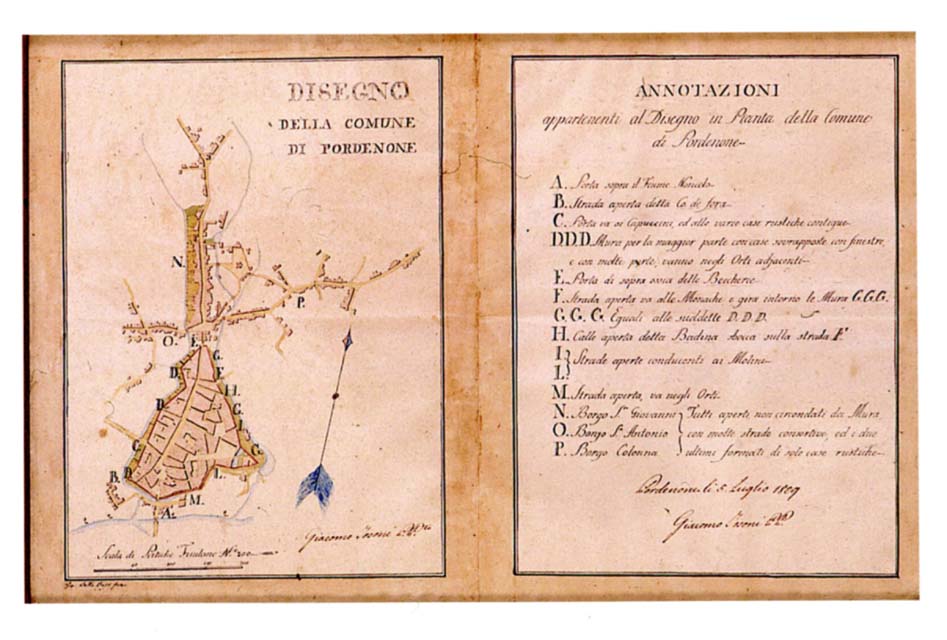 DISEGNO
DELLA COMUNE
DI PORDENONE
N.
P.
O.
E.
G.
D.
F.
H.
D.
G.
I.
G.
G.
D.
L.
B.
M.
A.
Giacomo
Scala di Pertiche Friulane N.º 200
ANNOTAZIONI
appartenenti al Disegno in Pianta della Comune
di Pordenone
A. Porta sopra il Fiume Noncelo
B. Strada aperta detta Co de fora
C. Porta va ai Capuccini, ed alle varie case rustiche contigue
D.D.D. Mura per la maggior parte con case sovrapposte con finestre,
e con molte porte, vanno negli Orti adjacenti
E. Porta di sopra ossia delle Beccherie
F. Strada aperta va alle Monache e gira intorno le Mura G.G.G.
G. G. G. Eguali alle suddette D. D. D.
H. Calle aperta detta Bodina sbocca sulla strada F
I. } Strade aperte conducenti ai Molini
L.
M. Strada aperta, va negli Orti
N. Borgo S.n Giovanni } Tutti aperti, non circondati da Mura,
O. Borgo S.t Antonio con molte strade consortive, ed i due
P. Borgo Colonna ultimi formati di solo case rustiche
Pordenone li 5 Luglio 1809
Giacomo